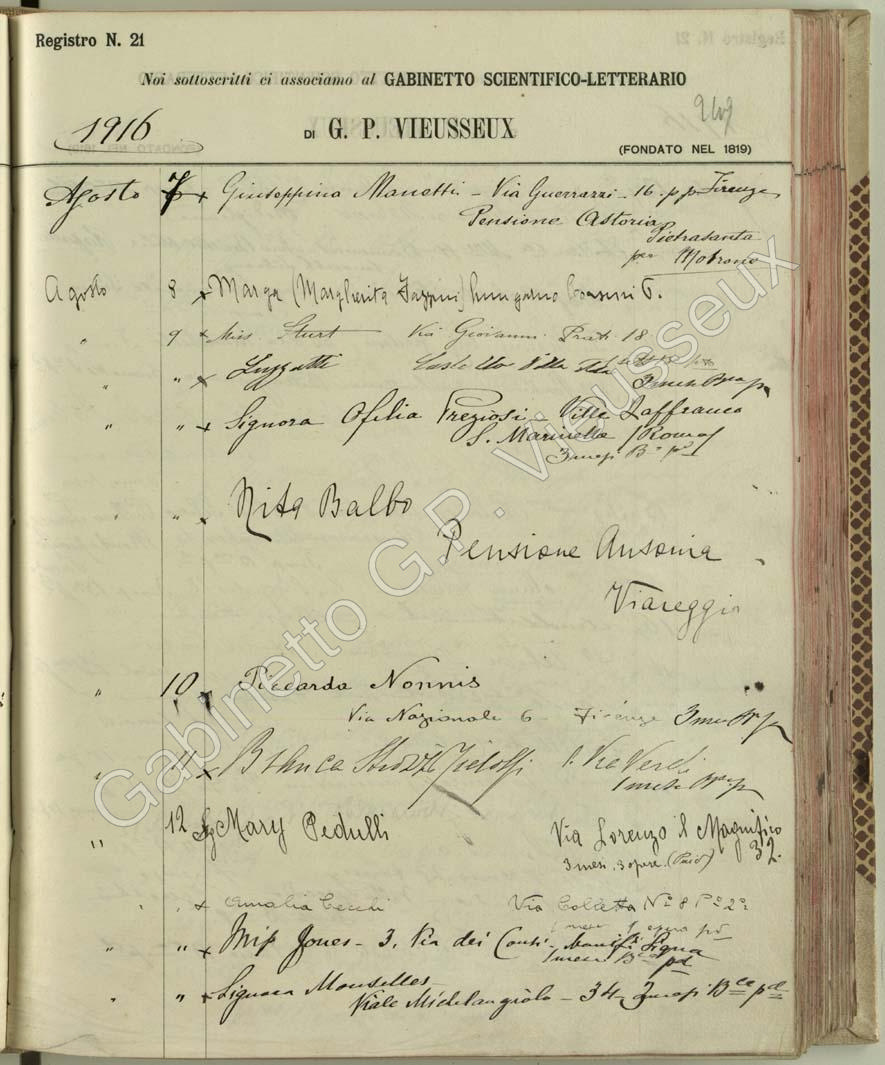 Registro N. 21
Noi sottoscritti ci associamo al GABINETTO SCIENTIFICO-LETTERARIO
1916
DI G. P. VIEUSSEUX
(FONDATO NEL 1819)
Agosto 7 x Giuseppina Manetti - Via Guerrazzi - 16. p.p. Firenze
Pensione Astoria
Pietrasanta
per Motrone
Agosto 8 x Marga (Margherita
" 9 x Miss. Sturt Via Giovanni Prati 18
" " x Luzzatti Castello Villa
3 mesi
" " x Signora Ofelia Preziosi - Villa Laffranco
S. Marinella (Roma)
3 mesi
" " x Nita Balbo
Pensione Ausonia
Viareggio
" 10 Riccarda Nonnis
Via Nazionale 6 - Firenze 3 mesi
" 11 x Bianca Strozzi Ridolfi 1. Via Verdi
1 mese
" 12 Mary Pedulli Via Lorenzo il Magnifico
32.
3 mesi. 3 opere. (Paid)
" " x Amalia Cecchi Via Colletta No 8 Po 2o
" " x Miss Jones - 3. Via dei Conti - Signa
1 mese pd
" " x Signora Monselles
Viale Michelangiolo - 34 - 3 mesi Bce pd
Gabinetto G.P. Vieusseux